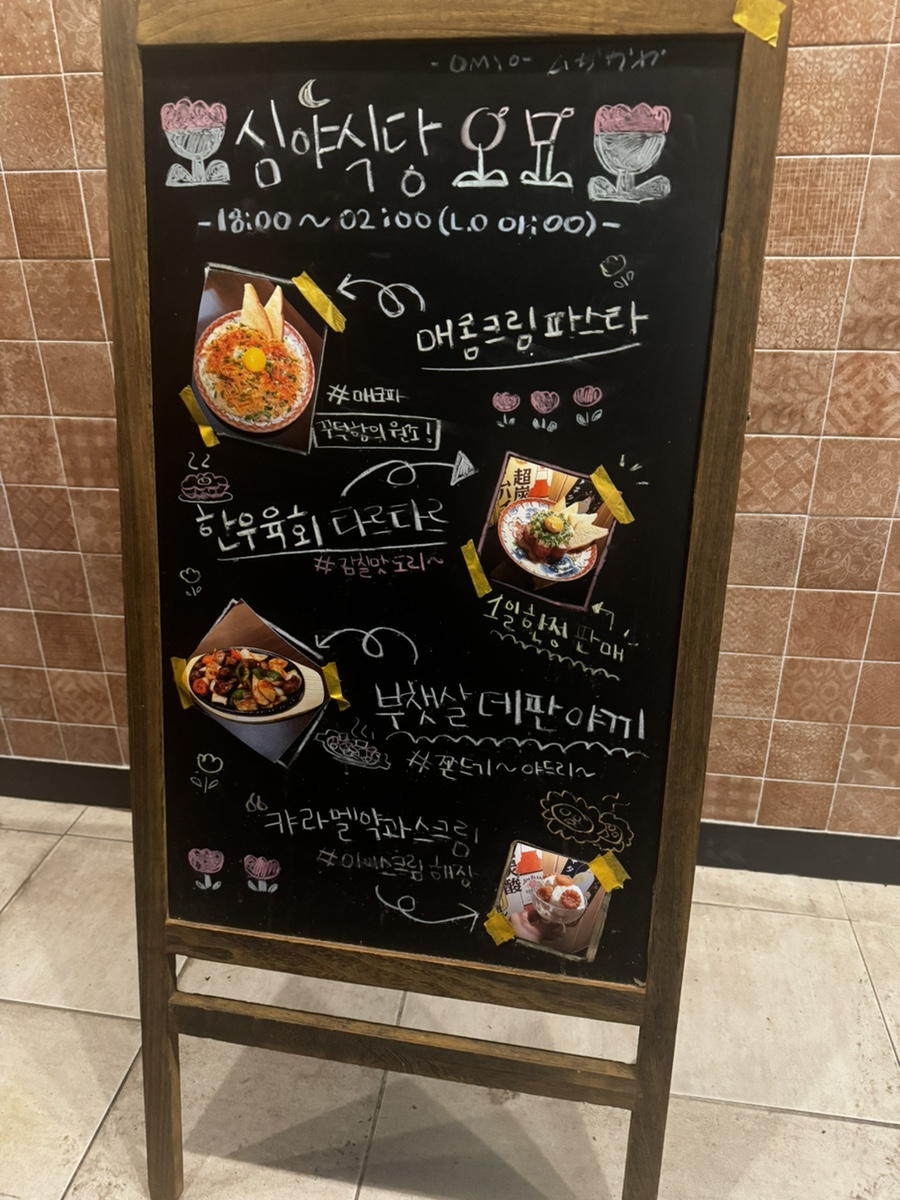 -OMYO-
심야식당 오묘
-18:00 ~ 02:00 (L.O 01:00)-
매콤크림파스타
#매크파
꾸덕함의 원조!
한우육회 다르다르
#감칠맛도리~
1일한정 판매
부챗살 데판야끼
#쫀드기~야드리~
캬라멜약과스크림
#아이스크림 해장